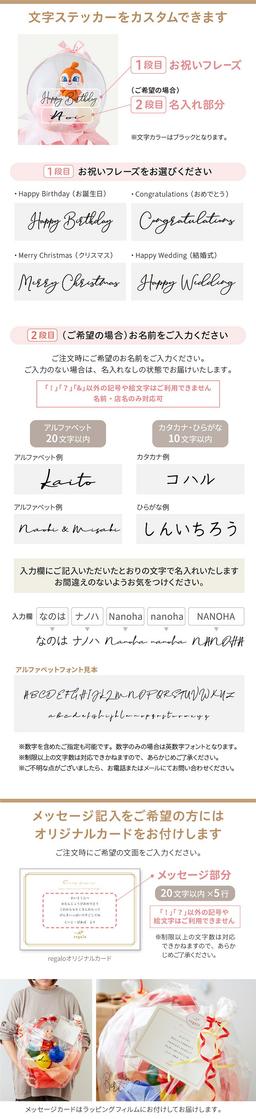 文字ステッカーをカスタムできます
1段目 お祝いフレーズ
Happy Birthday
Noi
(ご希望の場合)
2段目 名入れ部分
※文字カラーはブラックとなります。
1段目 お祝いフレーズをお選びください
・Happy Birthday(お誕生日)
・Congratulations(おめでとう)
Happy Birthday
Congratulations
・Merry Christmas(クリスマス)
・Happy Wedding(結婚式)
Merry Christmas
Happy Wedding
2段目 (ご希望の場合)お名前をご入力ください
ご注文時にご希望のお名前をご入力ください。
ご入力のない場合は、名入れなしの状態でお届けいたします。
「!」「?」「&」以外の記号や絵文字はご利用できません
名前・店名のみ対応可
アルファベット
20文字以内
カタカナ・ひらがな
10文字以内
アルファベット例
カタカナ例
Kaito
コハル
アルファベット例
ひらがな例
Naoki & Misaki
しんいちろう
入力欄にご記入いただいたとおりの文字で名入れいたします
お間違えのないようお気をつけください。
入力欄 なのは ナノハ Nanoha nanoha NANOHA
なのは ナノハ Nanoha nanoha NANOHA
アルファベットフォント見本
ABCDEFGHIJKLMNOPQRSTUVWXYZ
abcdefghijklmnopqrstuvwxyz
※数字を含めたご指定も可能です。数字のみの場合は英数字フォントとなります。
※制限以上の文字数は対応できかねますので、あらかじめご了承ください。
※ご不明な点がございましたら、お電話またはメールにてお問い合わせください。
メッセージ記入をご希望の方には
オリジナルカードをお付けします
ご注文時にご希望の文面をご入力ください。
メッセージ部分
20文字以内×5行
「!」「?」以外の記号や
絵文字はご利用できません
※制限以上の文字数は対応
できかねますので、あらか
じめご了承ください。
regalo
regaloオリジナルカード
メッセージカードはラッピングフィルムにお付けしてお届けします。